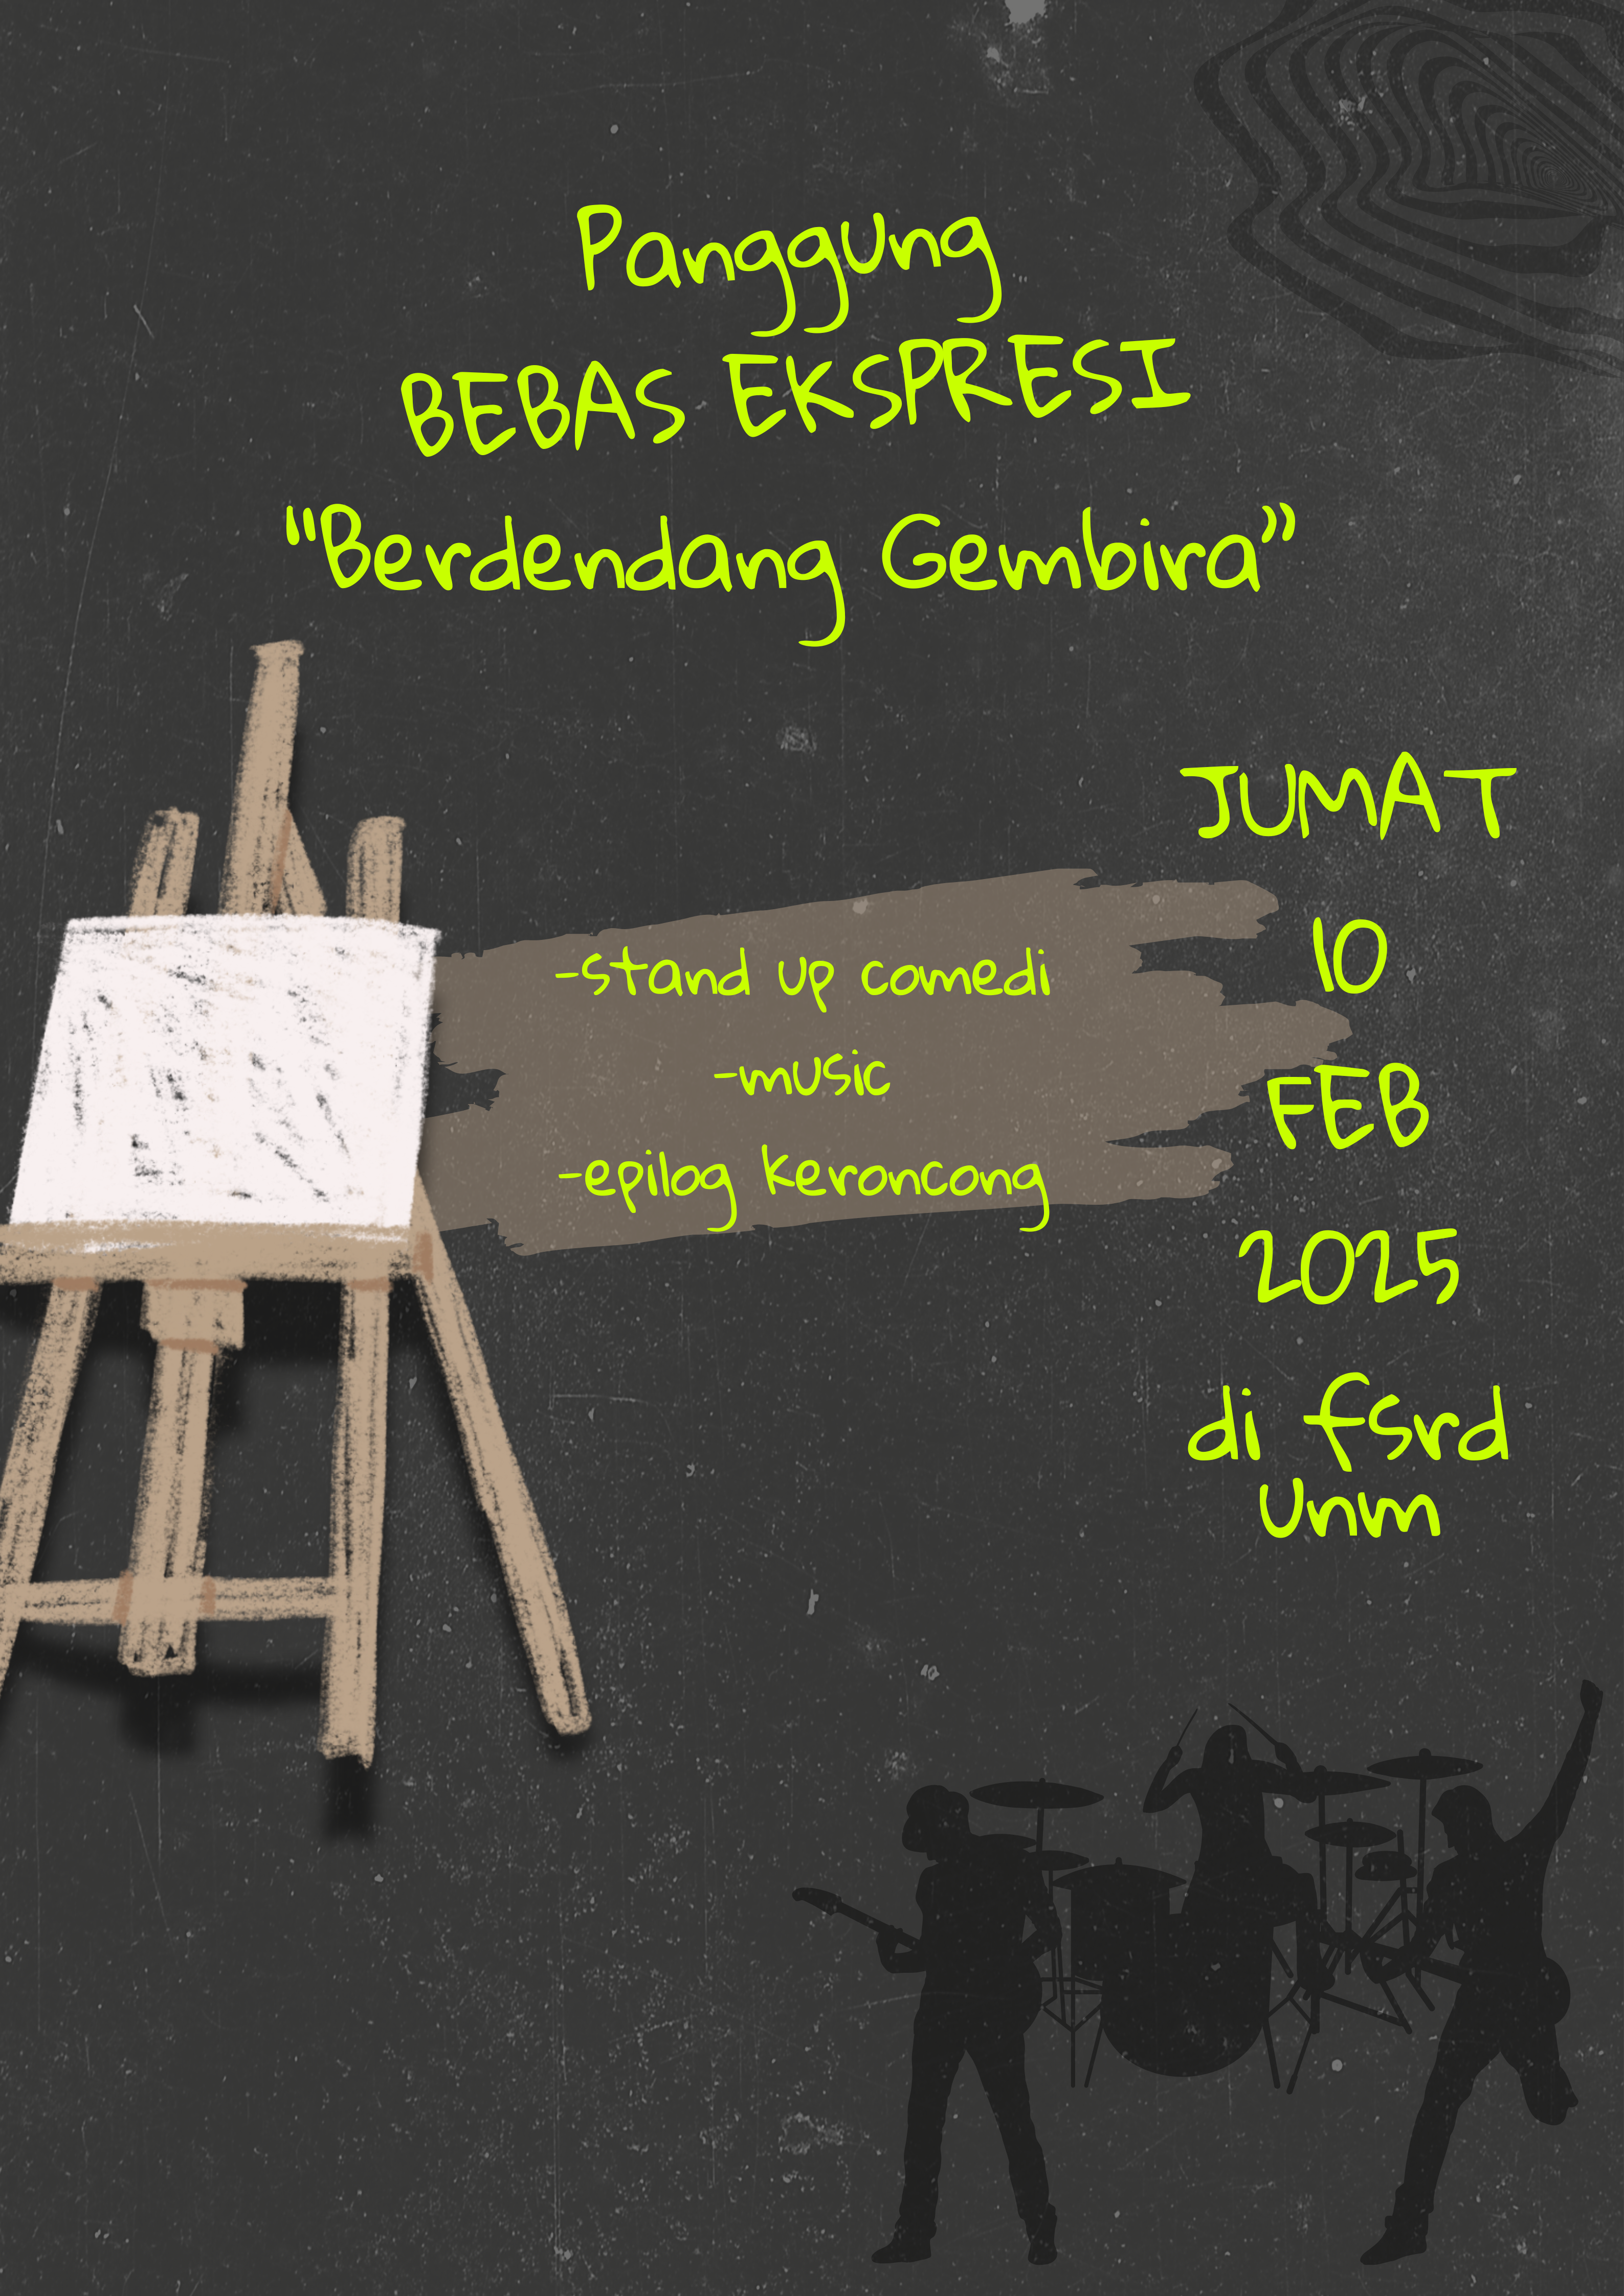 Panggung
BEBAS EKSPRESI
“Berdendang Gembira”
JUMAT
10
FEB
2025
di fsrd
unm
-stand up comedi
-music
-epilog keroncong